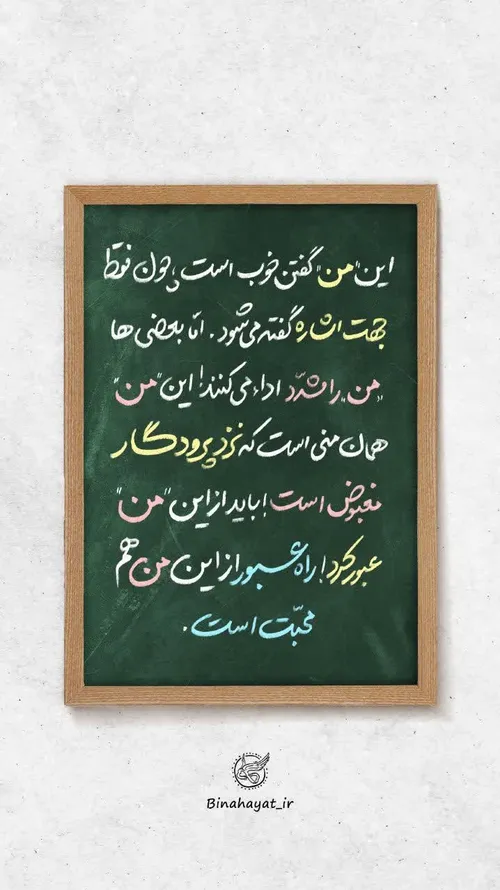 این "من" گفتن خوب است؛ چون فقط
جهت اشاره گفته می‌شود. امّا بعضی ها
"من" را مشدّد اداء می‌کنند! این "من"
همان منی است که نزد پرودگار
مغبوض است! باید از این "من"
عبور کرد! راه عبور از این من هم
محبّت است.
Binahayat_ir